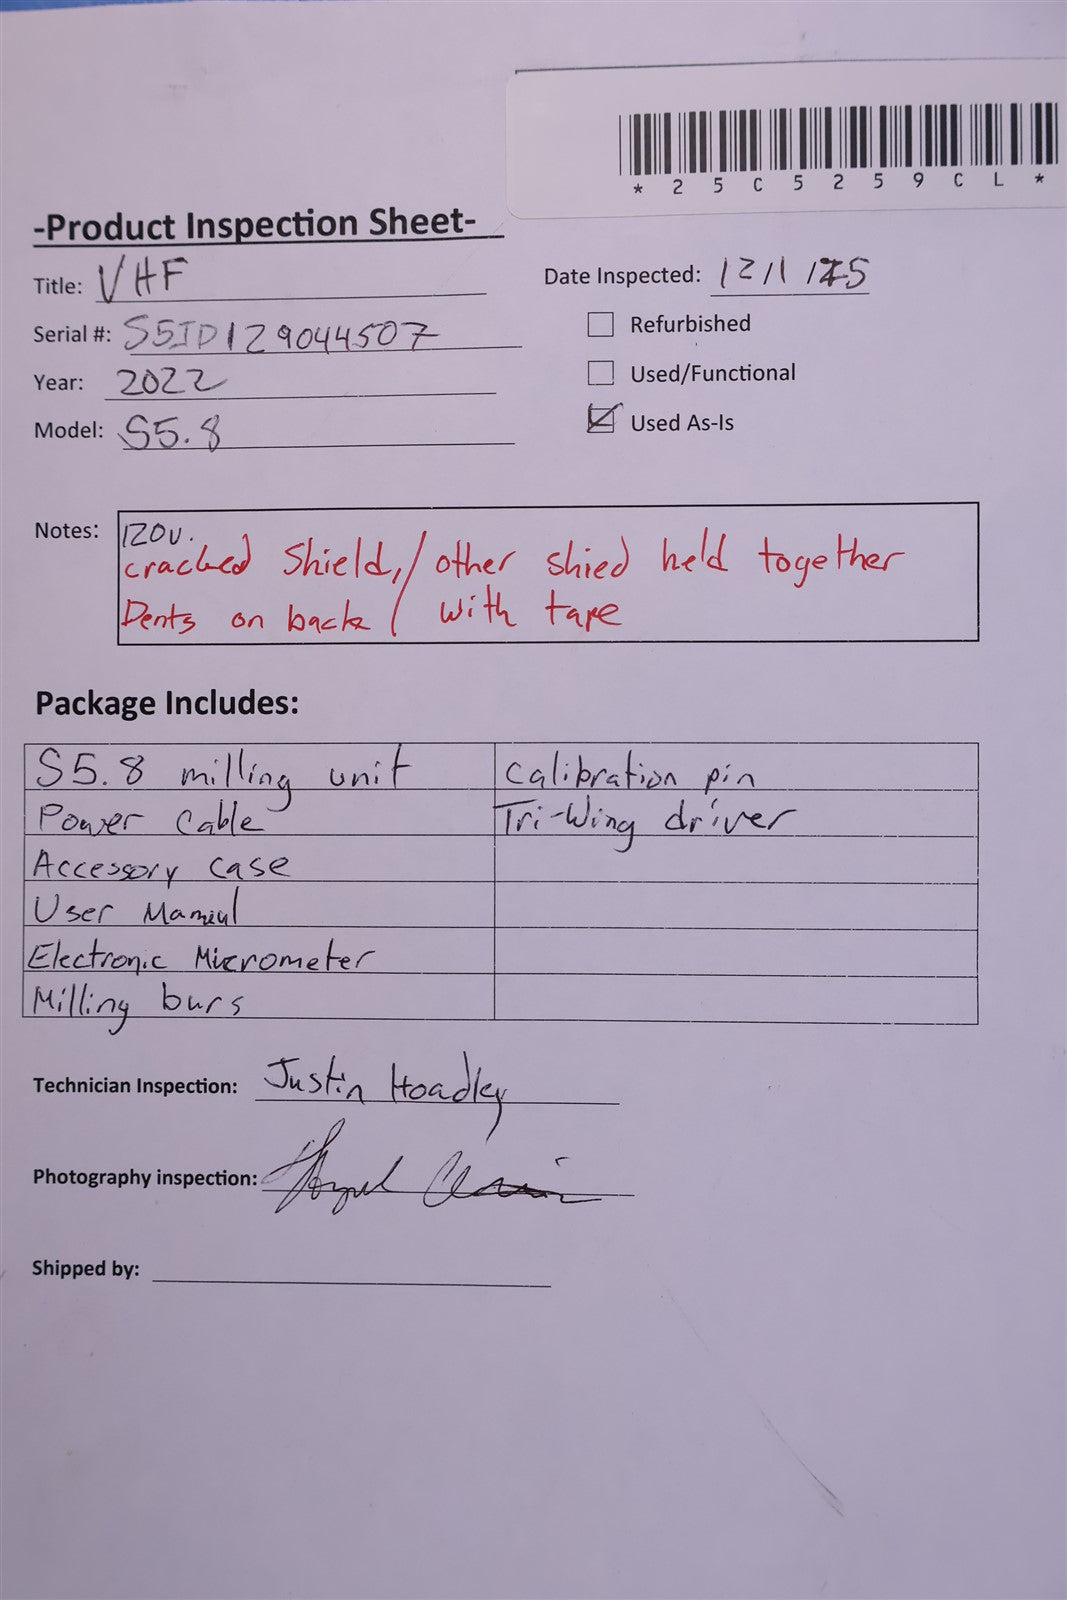 * 2 5 C 5 2 5 9 C L *
-Product Inspection Sheet-
Title: VHF
Date Inspected: 12/1/25
Serial #: S5ID129044507
Refurbished
Year: 2022
Used/Functional
Model: S5.8
Used As-Is
Notes: 120v.
cracked Shield,/other shied held together
Dents on back/ with tape
Package Includes:
S5.8 milling unit Calibration pin
Power Cable Tri-Wing driver
Accessory case
User Manual
Electronic Micrometer
Milling burs
Technician Inspection: Justin Hoadley
Photography inspection:
Shipped by: